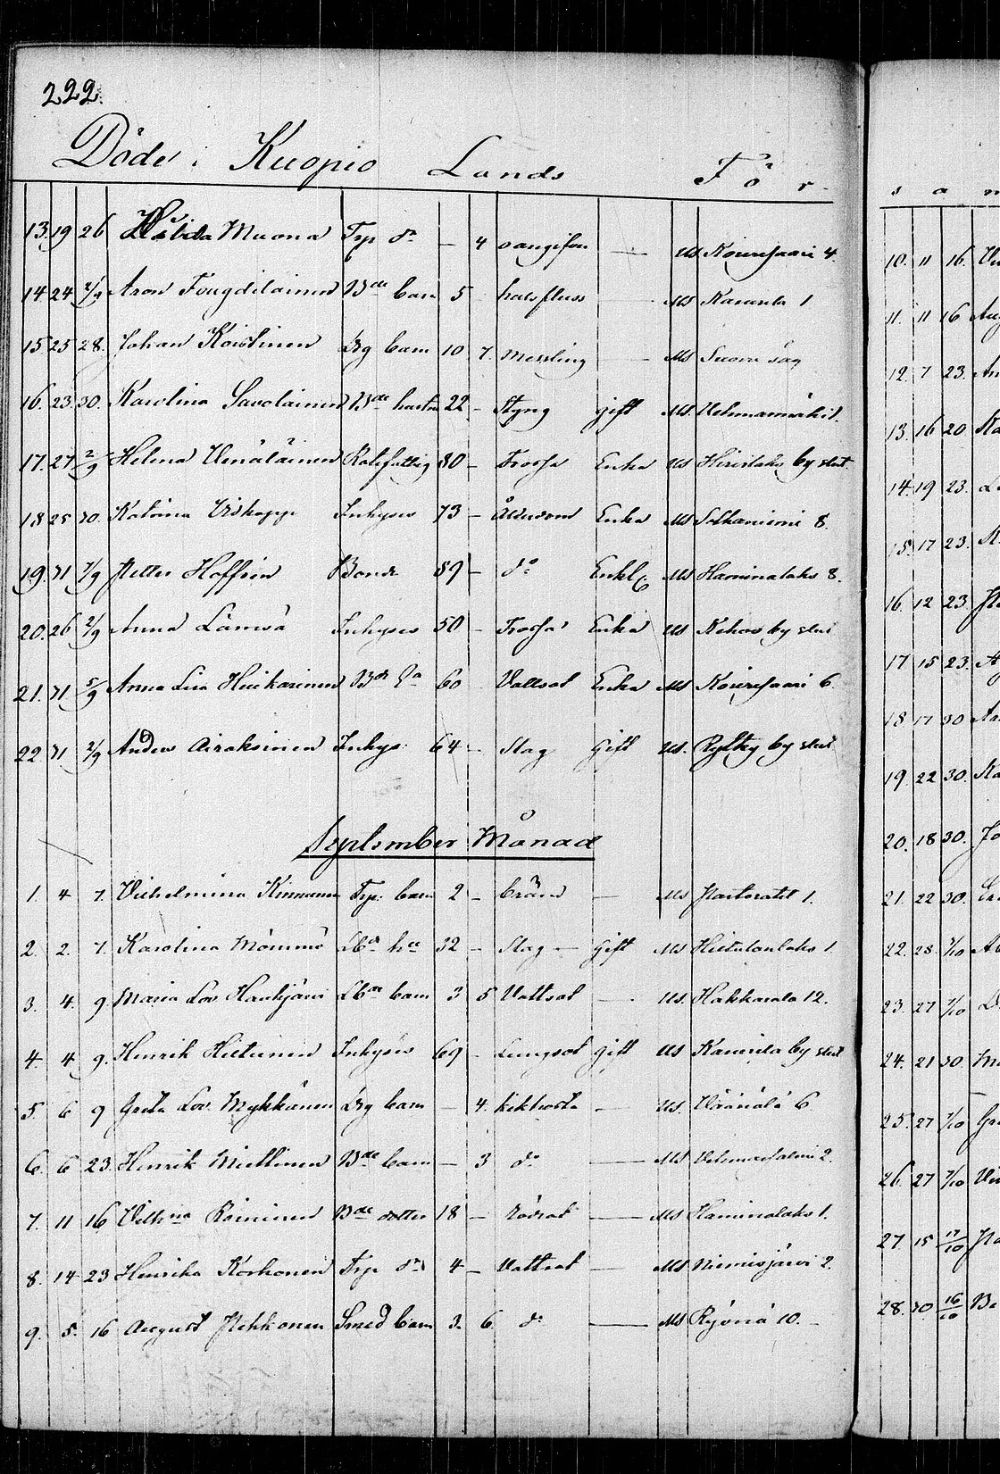 222.
Döde i Kuopio Lands För s a m
13. 19 26 Hilda Muona Trp dr — 4 oangifven — us Kouvusaari 4.
14 24 2/9 Aron Tougdilainen Bde barn 5 - halsfluss — Ms Kaurila 1
15 25 28. Johan Koistinen Drg barn 10 7. Messling — Ms Suovu såg
16. 23. 30. Karolina Savolainen Bde hustru 22 - Styng gift Ms. Vehmasmäki 1.
17. 27 2/9 Helena Venäläinen Rotefattig 80 - Trosssa Enka us Hirvilaks by slut
18 25 30. Katarina Viskappi Inhyses 73 - Ålderdom Enka Ms Sotkaniemi 8.
19. 31 7/9 Petter Hoffrén Bonde 89 - do Enkl. Ms Haminalaks 8.
20. 26 2/9 Anna Lämsä Inhyses 50 - Trossa Enka us Kehvo by slut
21. 31 5/9 Anna Lisa Huikarinen Bde Ea 60 - Vattsot Enka Ms Kouvusaari 6
22 31 2/9 Anders Airaksinen Inhys. 64 - Slag Gift us. Rytky by slut
September Månad
1. 4 7. Vilhelmina Kinnunen Trp. barn 2 - bränd — Ms Pastoratet 1.
2. 2. 7. Karolina Mömmö Lbde hu 32 - Slag — gift Ms Hietalanlaks 1
3. 4. 9. Maria Lov. Haukjärvi Lbde barn 3 5 Vattsot — us. Hakkarala 12.
4. 4 9. Henrik Hietunen Inhyses 69 - Lungsot gift us Kaurila by slut
5. 6 9 Greta Lov. Mykkänen Drg barn — 4. kikhosta — us. Väänälä 6
6. 6 23. Henrik Miettinen Bde barn — 3 do — Ms Vehmersalmi 2.
7. 11 16 Vilhna Räininen Bde dotter 18 - Rödsot — Ms Haminalaks 1.
8. 14 23 Henrika Korhonen Trp dr 4 - Vattsot — Ms Niemisjärvi 2.
9. 5. 16 August Pekkonen Smed barn 3. 6 do — Ms Ryönä 10. -
10. 11 16.
11. 11 16
12. 7 23.
13. 16 20
14. 19 23.
15. 17 23.
16. 12 23.
17 15 23.
18 17 30
19. 22 30.
20. 18 30.
21. 22 30.
22. 28. 7/10
23. 27 7/10
24. 21 30.
25. 27 7/10
26. 27 7/10
27. 15 17/10
28. 30 16/10